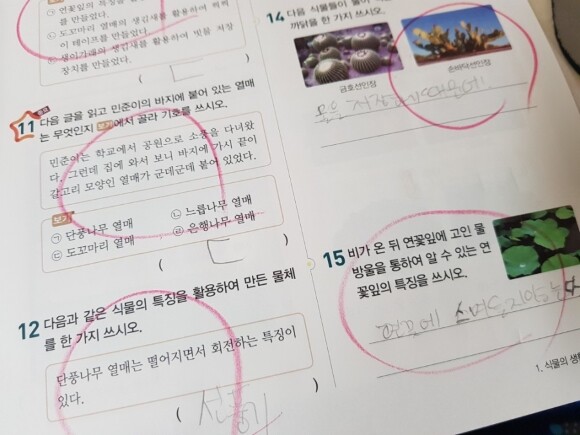 ㉠ 연꽃잎의 특징을
를 만들었다.
㉡ 도꼬마리 열매의 생김새를 활용하여 찍찍
이 테이프를 만들었다.
생김새를 활용하여 빗물 저장
장치를 만들었다.
11 다음 글을 읽고 민준이의 바지에 붙어 있는 열매
는 무엇인지 보기에서 골라 기호를 쓰시오.
민준이는 학교에서 공원으로 소풍을 다녀왔
다. 그런데 집에 와서 보니 바지에 가시 끝이
갈고리 모양인 열매가 군데군데 붙어 있었다.
보기
㉠ 단풍나무 열매 ㉡ 느릅나무 열매
㉢ 도꼬마리 열매 ㉣ 은행나무 열매
( ㄷ )
12 다음과 같은 식물의 특징을 활용하여 만든 물체
를 한 가지 쓰시오.
단풍나무 열매는 떨어지면서 회전하는 특징이
있다.
( 선풍기
14 다음 식물들이
까닭을 한 가지 쓰시오.
금호선인장
손바닥선인장
물을 저장
15 비가 온 뒤 연꽃잎에 고인 물
방울을 통하여 알 수 있는 연
꽃잎의 특징을 쓰시오.
1. 식물의 생